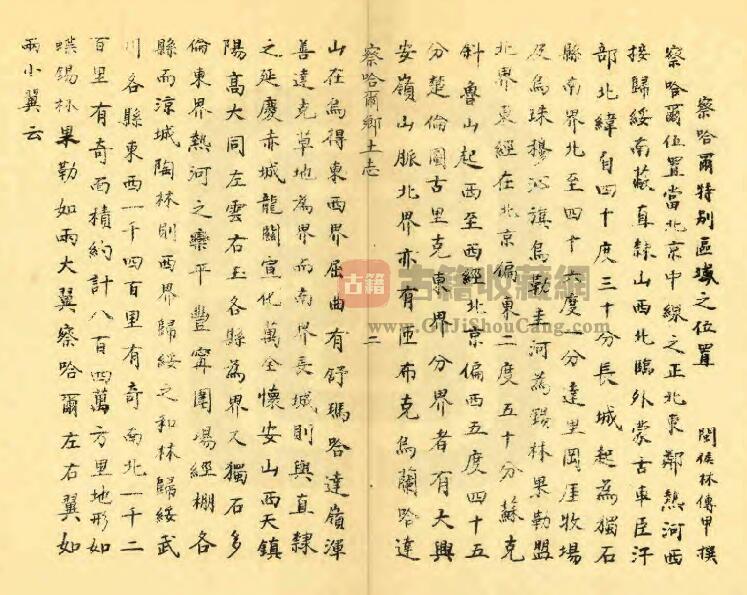 察哈爾特別區域之位置　閩侯林傳甲撰
察哈爾位置當北京中線之正北東鄰熱河西
接歸綏南蔽直隸山西北臨外蒙古車臣汗
部北緯自四十度三十分長城起為獨石
縣南界北至四十六度一分達里岡厓牧場
及烏珠穆沁旗烏勒圭河為錫林果勒盟
北界東經在北京偏東二度五十分蘇克
斜魯山起西至西經北京偏西五度四十五
分楚倫圖古里克東界分界者有大興
安嶺山脈北界亦有匝布克烏蘭哈達
察哈爾鄉土志
二
山在烏得東西界屈曲有舒瑪哈達嶺渾
善達克草地為界而南界長城則與直隸
之延慶赤城龍關宣化萬全懷安山西天鎮
陽高大同左雲右玉各縣為界又獨石多
倫東界熱河之欒平豐寧圍場經棚各
縣西涼城陶林則西界歸綏之和林歸綏武
川各縣東西一千四百里有奇南北一千二
百里有奇面積約計八百四萬方里地形如
蝶錫林果勒如兩大翼察哈爾左右翼如
兩小翼云
古籍
古籍收藏网
www.GuJiShouCang.com